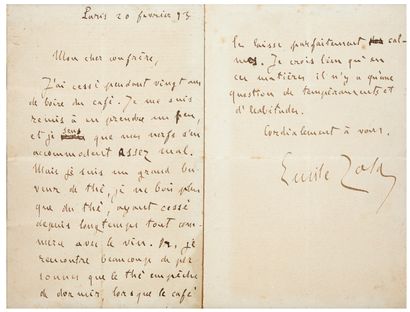 Paris 20 février 93.
Mon cher confrère,
J'ai cessé pendant vingt ans
de boire du café. Je me suis
remis à en prendre un peu,
et je sens que mes nerfs s'en
accommodent assez mal.
Mais je suis un grand bu
veur de thé, je ne bois plus
que du thé, ayant cessé
depuis longtemps tout com
merce avec le vin. Or, je
rencontre beaucoup de per
sonnes que le thé empêche
de dormir, lorsque le café
les laisse parfaitement cal
mes. Je crois bien qu'en
ces matières il n'y a qu'une
question de tempéraments et
d'habitudes.
Cordialement à vous.
Emile Zola